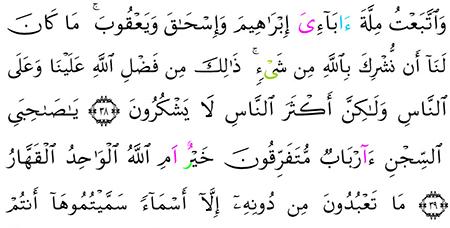 وَٱتَّبَعْتُ مِلَّةَ ءَابَآءِىٓ إِبْرَٰهِيمَ وَإِسْحَٰقَ وَيَعْقُوبَ ۚ مَا كَانَ
لَنَآ أَن نُّشْرِكَ بِٱللَّهِ مِن شَىْءٍ ۚ ذَٰلِكَ مِن فَضْلِ ٱللَّهِ عَلَيْنَا وَعَلَى
ٱلنَّاسِ وَلَٰكِنَّ أَكْثَرَ ٱلنَّاسِ لَا يَشْكُرُونَ ﴿٣٨﴾ يَٰصَٰحِبَىِ
ٱلسِّجْنِ ءَأَرْبَابٌ مُّتَفَرِّقُونَ خَيْرٌ أَمِ ٱللَّهُ ٱلْوَٰحِدُ ٱلْقَهَّارُ
﴿٣٩﴾ مَا تَعْبُدُونَ مِن دُونِهِۦٓ إِلَّآ أَسْمَآءً سَمَّيْتُمُوهَآ أَنتُمْ